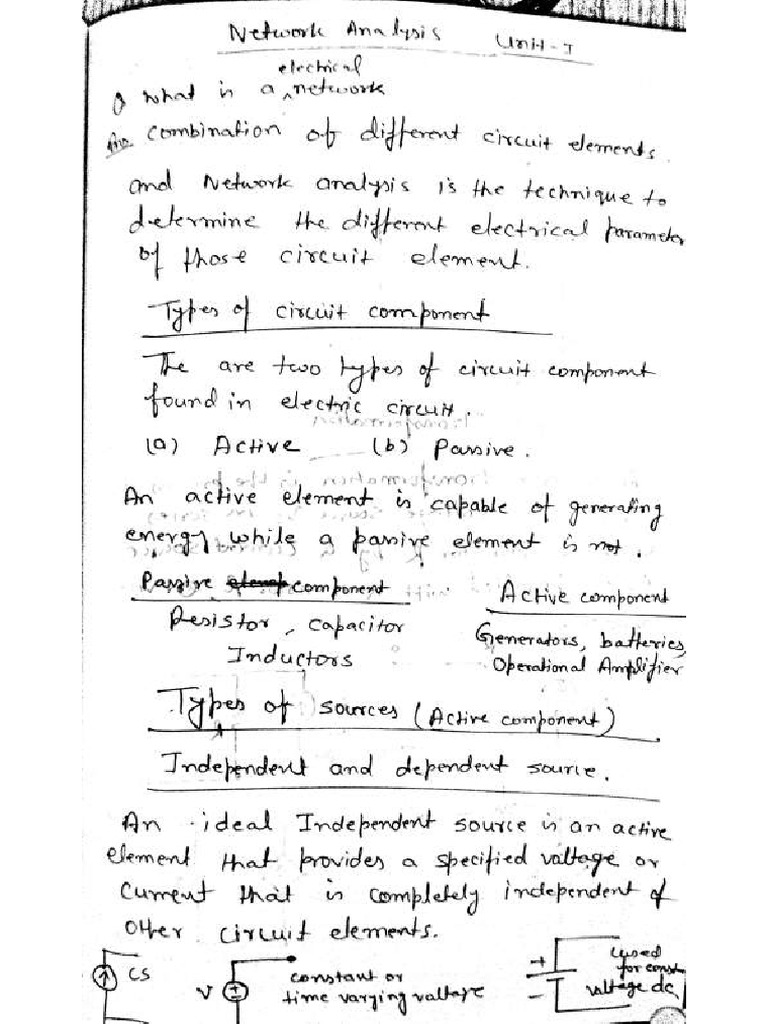 Network Analysis Unit-I
Q what is a electrical network
Ans. combination of different circuit elements.
and Network analysis is the technique to
determine the different electrical parameter
of those circuit element.
Types of circuit component
The are two types of circuit component
found in electric circuit.
(a) Active (b) Passive.
An active element is capable of generating
energy while a passive element is not.
Passive component Active component
Resistor, capacitor Generators, batteries,
Inductors Operational Amplifier
Types of sources (Active component)
Independent and dependent source.
An ideal Independent source is an active
element that provides a specified voltage or
current that is completely independent of
other circuit elements.
CS
V
constant or
time varying voltage
+
-
used
for const
voltage dc